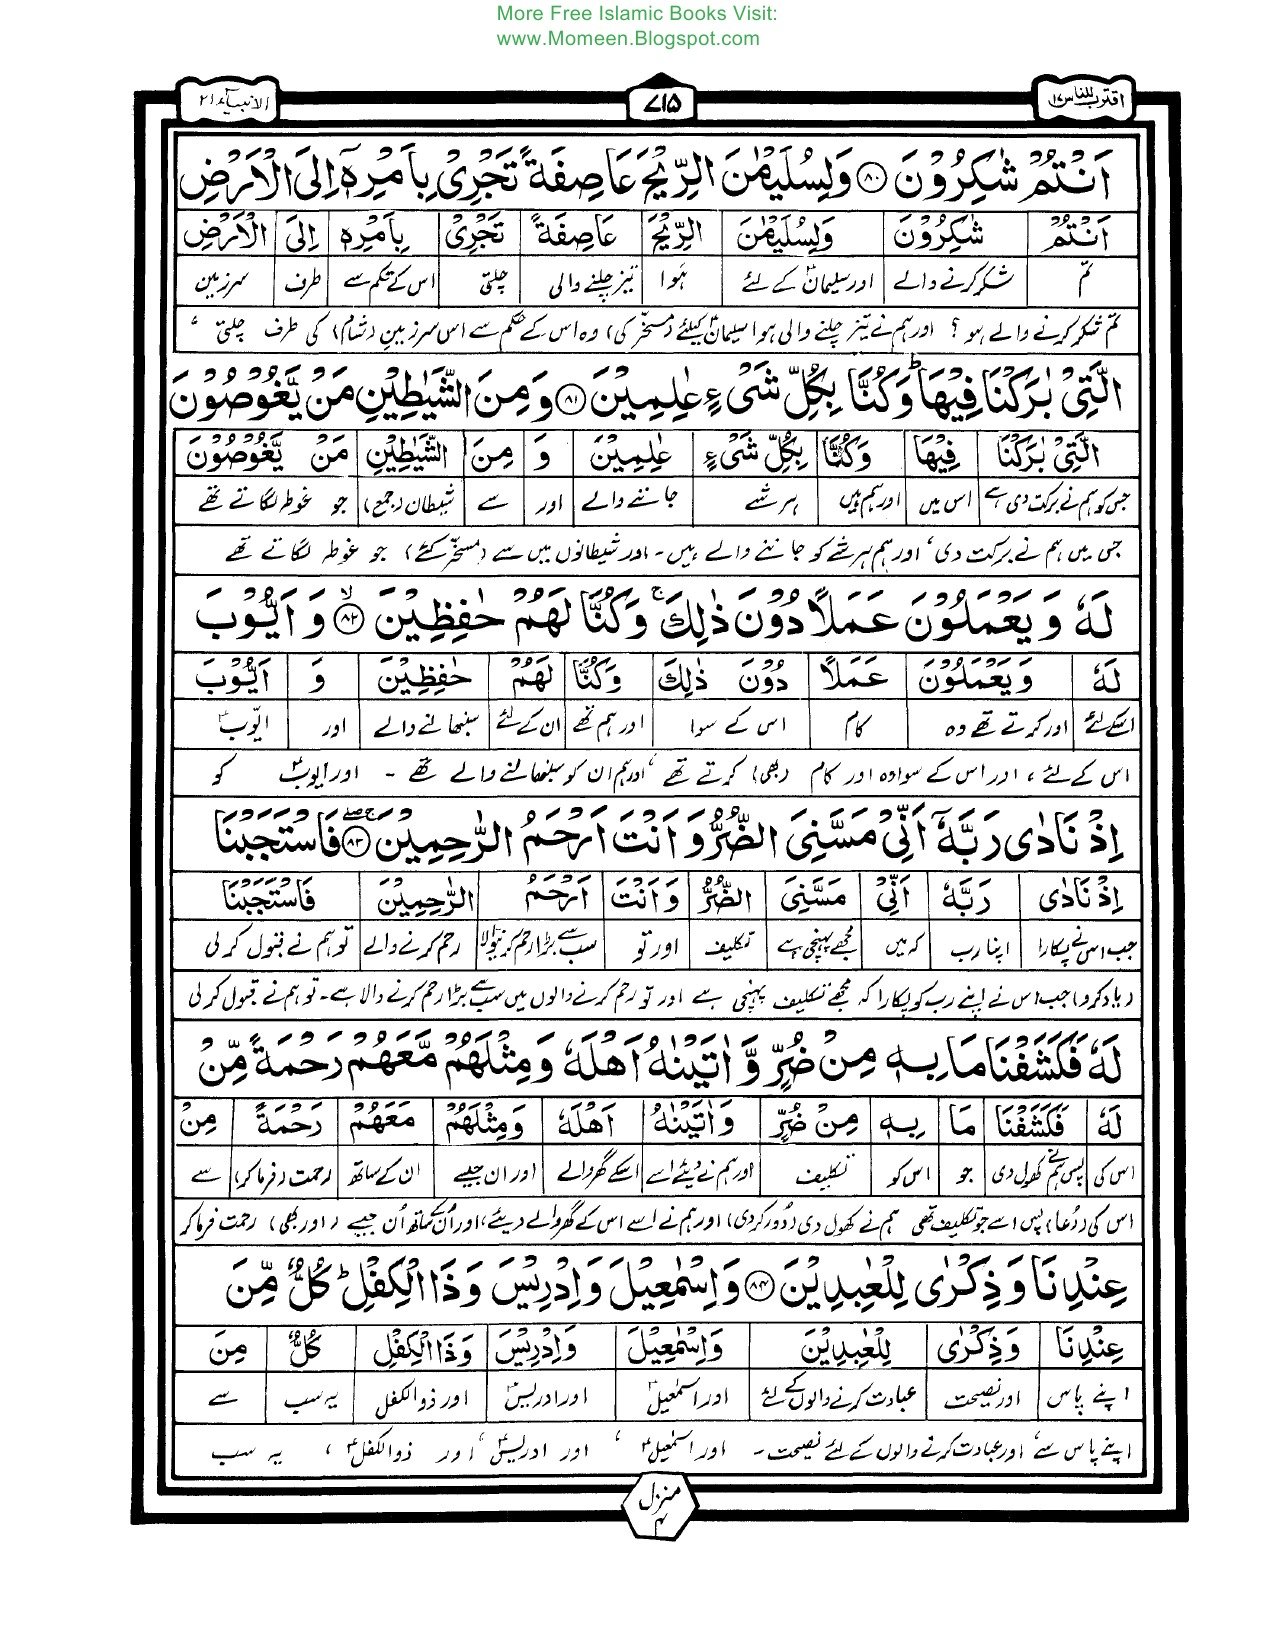 More Free Islamic Books Visit:
www.Momeen.Blogspot.com
اقترب للناس ١٧
٧١٥
الانبیآء ٢١
اَنْتُمْ شٰكِرُوْنَ ﴿۸۰﴾ وَلِسُلَيْمٰنَ الرِّيْحَ عَاصِفَةً تَجْرِیْ بِاَمْرِهٖۤ اِلَی الْاَرْضِ
اَنْتُمْ شٰكِرُوْنَ وَلِسُلَيْمٰنَ الرِّيْحَ عَاصِفَةً تَجْرِیْ بِاَمْرِهٖ اِلَی الْاَرْضِ
تم شکر کرنے والے اور سلیمانؑ کے لئے ہوا تیز چلنے والی چلتی اس کے حکم سے طرف سرزمین
تم شکر کرنے والے ہو ؟ اور ہم نے تیز چلنے والی ہوا سلیمانؑ کیلئے (مسخر کی) وہ اس کے حکم سے اس سرزمین (شام) کی طرف چلتی ،
الَّتِیْ بٰرَكْنَا فِيْهَا ؕ وَكُنَّا بِكُلِّ شَیْءٍ عٰلِمِيْنَ ﴿۸۱﴾ وَمِنَ الشَّيٰطِيْنِ مَنْ يَّغُوْصُوْنَ
الَّتِیْ بٰرَكْنَا فِيْهَا وَكُنَّا بِكُلِّ شَیْءٍ عٰلِمِيْنَ وَ مِنَ الشَّيٰطِيْنِ مَنْ يَّغُوْصُوْنَ
جس کو ہم نے برکت دی ہے اس میں اور ہم ہیں ہر شے جاننے والے اور سے شیطان (جمع) جو غوطہ لگاتے تھے
جس میں ہم نے برکت دی، اور ہم ہر شے کو جاننے والے ہیں۔ اور شیطانوں میں سے (مسخر کئے) جو غوطہ لگاتے تھے
لَهٗ وَيَعْمَلُوْنَ عَمَلًا دُوْنَ ذٰلِكَ ۚ وَكُنَّا لَهُمْ حٰفِظِيْنَ ﴿۸۲﴾ۙ وَاَيُّوْبَ
لَهٗ وَيَعْمَلُوْنَ عَمَلًا دُوْنَ ذٰلِكَ وَكُنَّا لَهُمْ حٰفِظِيْنَ وَ اَيُّوْبَ
اسکے لئے اور کرتے تھے وہ کام اس کے سوا اور ہم تھے ان کے لئے سنبھالنے والے اور ایوبؑ
اس کے لئے ، اور اس کے سوا وہ اور کام (بھی) کرتے تھے ، اور ہم ان کو سنبھالنے والے تھے ۔ اور ایوبؑ کو
اِذْ نَادٰی رَبَّهٗۤ اَنِّیْ مَسَّنِیَ الضُّرُّ وَاَنْتَ اَرْحَمُ الرّٰحِمِيْنَ ﴿۸۳﴾ۚۖ فَاسْتَجَبْنَا
اِذْ نَادٰی رَبَّهٗ اَنِّیْ مَسَّنِیَ الضُّرُّ وَاَنْتَ اَرْحَمُ الرّٰحِمِيْنَ فَاسْتَجَبْنَا
جب اس نے پکارا اپنا رب کہ میں مجھے پہنچی ہے تکلیف اور تو سب سے بڑا رحم کرنیوالا رحم کرنے والے تو ہم نے قبول کر لی
(یاد کرو) جب اس نے اپنے رب کو پکارا کہ مجھے تکلیف پہنچی ہے اور تو رحم کرنے والوں میں سب سے بڑا رحم کرنے والا ہے۔ تو ہم نے قبول کر لی
لَهٗ فَكَشَفْنَا مَا بِهٖ مِنْ ضُرٍّ وَّاٰتَيْنٰهُ اَهْلَهٗ وَمِثْلَهُمْ مَّعَهُمْ رَحْمَةً مِّنْ
لَهٗ فَكَشَفْنَا مَا بِهٖ مِنْ ضُرٍّ وَاٰتَيْنٰهُ اَهْلَهٗ وَمِثْلَهُمْ مَعَهُمْ رَحْمَةً مِنْ
اس کی پس ہم نے کھول دی جو اس کو تکلیف اور ہم نے دیئے اسے اسکے گھر والے اور ان جیسے ان کے ساتھ رحمت (فرما کر) سے
اس کی (دُعا) پس اسے جو تکلیف تھی ہم نے کھول دی (دُور کردی) اور ہم نے اسے اس کے گھر والے دیئے، اور اُن کے ساتھ اُن جیسے (اور بھی) رحمت فرما کر
عِنْدِنَا وَذِكْرٰی لِلْعٰبِدِيْنَ ﴿۸۴﴾ وَاِسْمٰعِيْلَ وَاِدْرِيْسَ وَذَا الْكِفْلِ ؕ كُلٌّ مِّنَ
عِنْدِنَا وَذِكْرٰی لِلْعٰبِدِيْنَ وَاِسْمٰعِيْلَ وَاِدْرِيْسَ وَذَا الْكِفْلِ كُلٌّ مِنَ
اپنے پاس اور نصیحت عبادت کرنے والوں کے لئے اور اسمٰعیلؑ اور ادریسؑ اور ذوالکفل یہ سب سے
اپنے پاس سے، اور عبادت کرنے والوں کے لئے نصیحت۔ اور اسمٰعیلؑ ، اور ادریسؑ ، اور ذوالکفلؑ ، یہ سب
منزل ۴